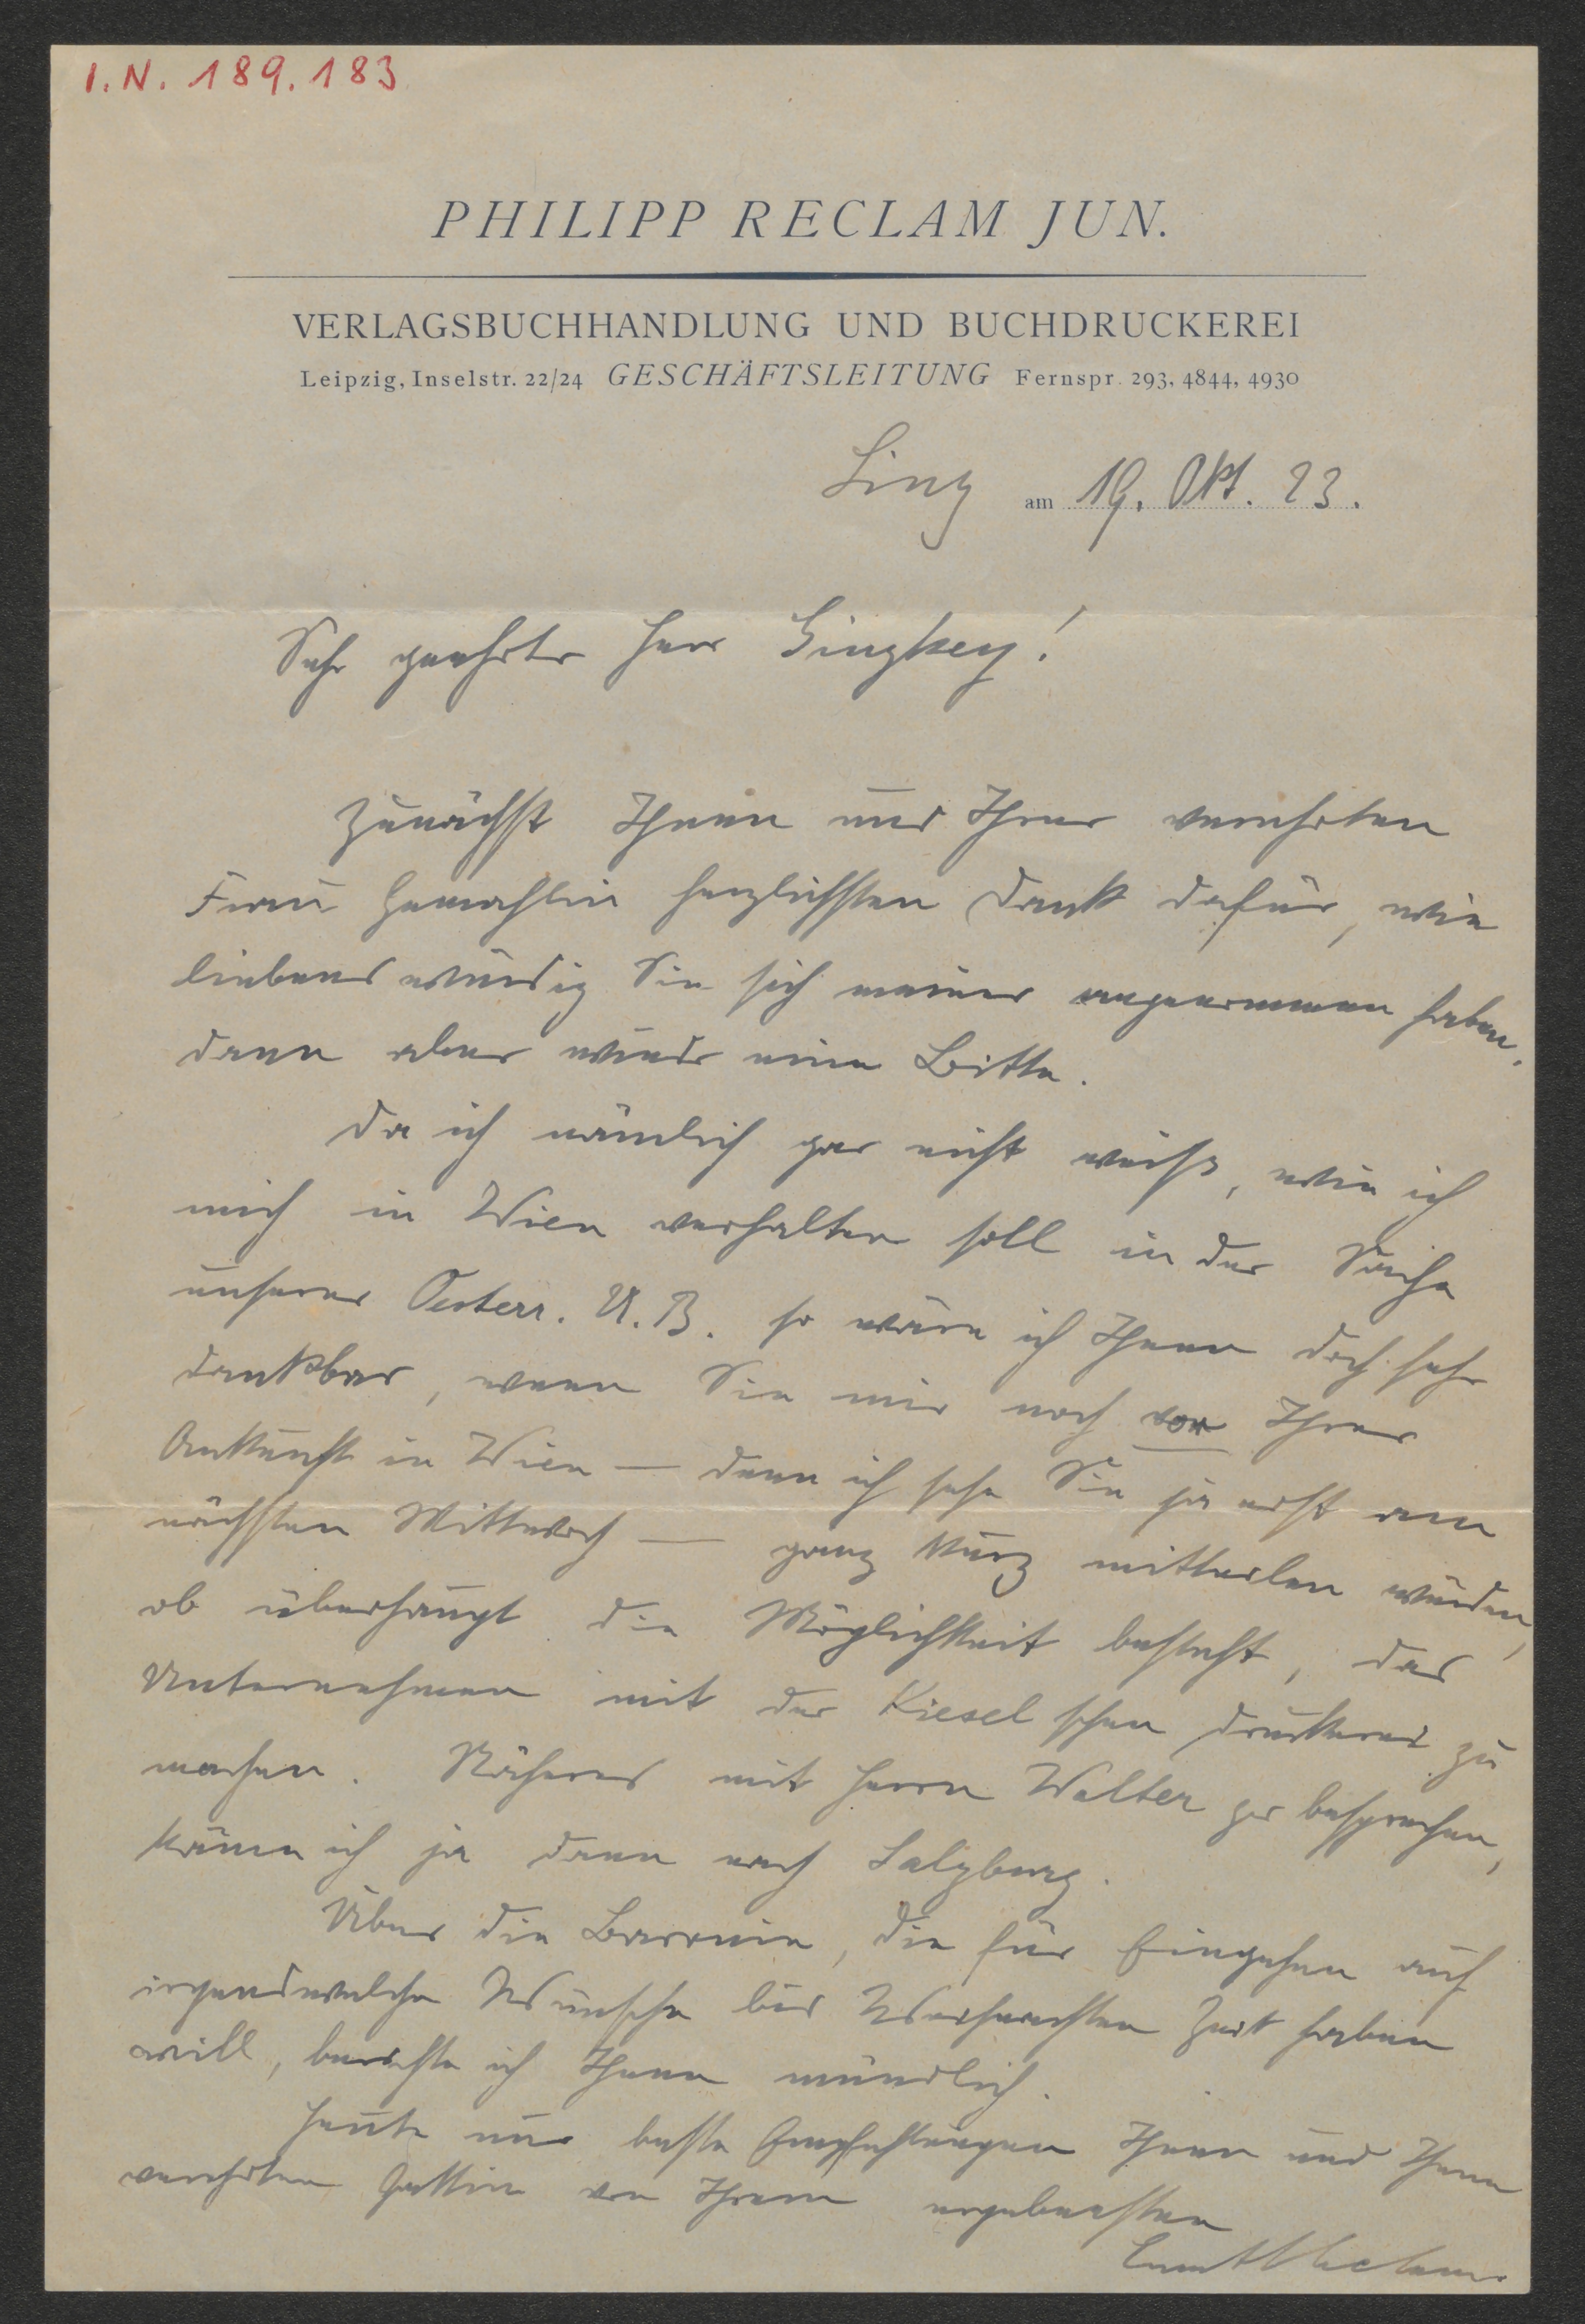 I.N. 189.183
PHILIPP RECLAM JUN.
VERLAGSBUCHHANDLUNG UND BUCHDRUCKEREI
Leipzig, Inselstr. 22/24 GESCHÄFTSLEITUNG Fernspr. 293, 4844, 4930
Linz am 19. Okt. 23.
Sehr geehrter Herr Ginzkey!
Zunächst Ihnen und Ihrer verehrten
Frau Gemahlin herzlichsten Dank dafür, wie
liebenswürdig Sie sich meiner angenommen haben,
dann aber wieder eine Bitte.
Da ich nämlich gar nicht weiß, wie ich
mich in Wien verhalten soll in der Sache
unserer Oesterr. U.B. so wäre ich Ihnen doch sehr
dankbar, wenn Sie mir noch vor Ihrer
Ankunft in Wien — denn ich sehe Sie ja erst am
nächsten Mittwoch — ganz kurz mitteilen würden,
ob überhaupt die Möglichkeit besteht, das
Unternehmen mit der Kieselschen Druckerei zu
machen. Näheres mit Herrn Walter zu besprechen,
käme ich ja dann nach Salzburg.
Über die Baronin, die für Eingehen auf
irgendwelche Wünsche bis Weihnachten Zeit haben
will, berichte ich Ihnen mündlich.
Heute nur beste Empfehlungen Ihnen und Ihrer
verehrten Gattin von Ihrem ergebensten
Reclam